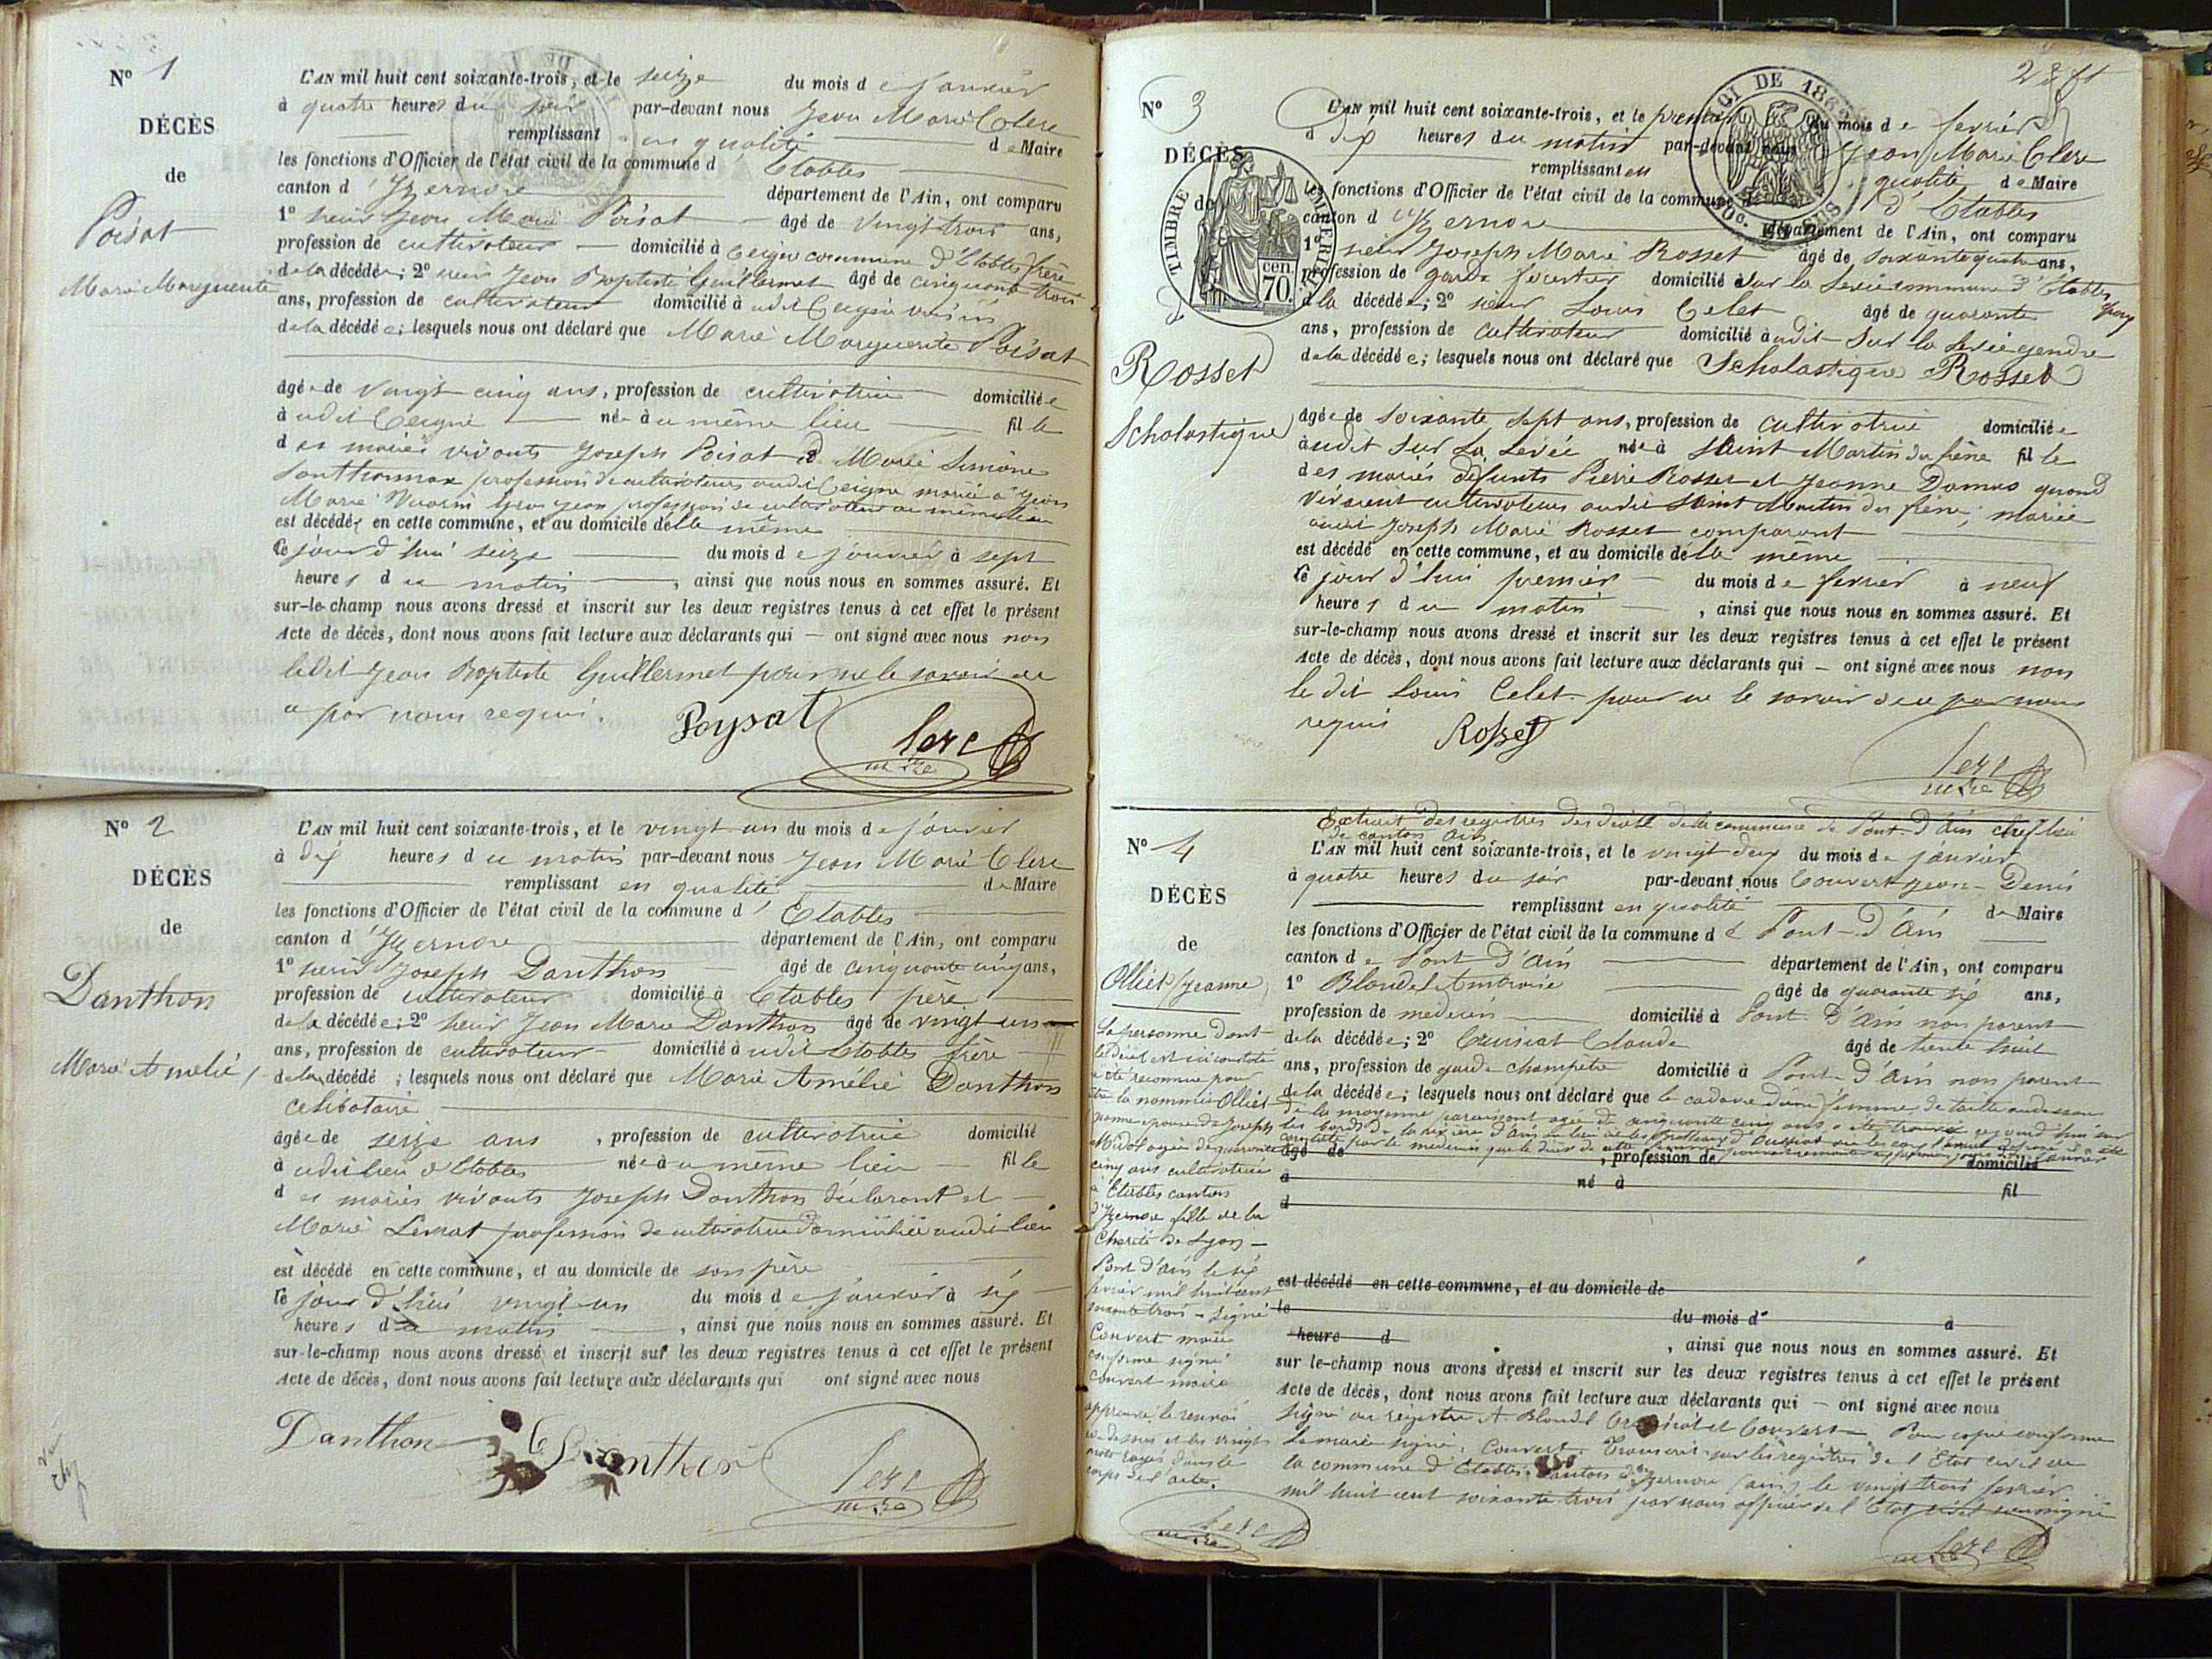 N° 1
DÉCÈS
de
Poisat
Marie Marguerite
L'AN mil huit cent soixante-trois, et le seize du mois de Janvier
à quatre heures du soir par-devant nous Jean Marie Clerc
remplissant en qualité de Maire
les fonctions d'Officier de l'état civil de la commune d'Etables
canton d'Yzernore département de l'Ain, ont comparu
1° sieur Jean Marie Poisat âgé de vingt trois ans,
profession de cultivateur domicilié à Ceigne commune d'Etables frère
de la décédée; 2° sieur Jean Baptiste Guillermet âgé de cinquante trois
ans, profession de cultivateur domicilié à udit Ceigne voisin
de la décédée; lesquels nous ont déclaré que Marie Marguerite Poisat
âgée de vingt cinq ans, profession de cultivatrice domiciliée
à udit Ceigne née à u même lieu fille
des mariés vivants Joseph Poisat & Marie Simône
Santhonnax profession de cultivateurs audit Ceigne mariée à Jean
Marie gros jean profession de cultivateur au même lieu
est décédée en cette commune, et au domicile d'elle même
le jour d'hui seize du mois de janvier à sept
heures du matin, ainsi que nous nous en sommes assuré. Et
sur-le-champ nous avons dressé et inscrit sur les deux registres tenus à cet effet le présent
Acte de décès, dont nous avons fait lecture aux déclarants qui — ont signé avec nous non
ledit Jean Baptiste Guillermet pour ne le savoir de
ce par nous requis.
Poysat Clerc
maire
N° 2
DÉCÈS
de
Danthon
Marie Amélie
L'AN mil huit cent soixante-trois, et le vingt un du mois de janvier
à dix heures du matin par-devant nous Jean Marie Clerc
remplissant en qualité de Maire
les fonctions d'Officier de l'état civil de la commune d'Etables
canton d'Yzernore département de l'Ain, ont comparu
1° sieur Joseph Danthon âgé de cinquante cinq ans,
profession de cultivateur domicilié à Etables père
de la décédée; 2° sieur Jean Marie Danthon âgé de vingt un
ans, profession de cultivateur domicilié à udit Etables frère
de la décédé; lesquels nous ont déclaré que Marie Amélie Danthon
célibataire
âgée de seize ans, profession de cultivatrice domicilié
à udit lieu d'Etables née à u même lieu fille
des mariés vivants Joseph Danthon déclarant et
Marie profession de cultivatrice domiciliée audit lieu
est décédé en cette commune, et au domicile de son père
le jour d'hui vingt un du mois de janvier à six
heures du matin, ainsi que nous nous en sommes assuré. Et
sur-le-champ nous avons dressé et inscrit sur les deux registres tenus à cet effet le présent
Acte de décès, dont nous avons fait lecture aux déclarants qui ont signé avec nous
Danthon Danthon Clerc
maire
N° 3
DÉCÈS
de
TIMBRE IMPERIAL
70 cen.
LOI DE 1862
Rosset
Scholastique
L'AN mil huit cent soixante-trois, et le premier du mois de février
à dix heures du matin par-devant nous Jean Marie Clerc
remplissant en qualité de Maire
les fonctions d'Officier de l'état civil de la commune d'Etables
canton d'Yzernore département de l'Ain, ont comparu
1° sieur Joseph Marie Rosset âgé de soixante quatre ans,
profession de garde forestier domicilié à Sur la Levée commune d'Etables
de la décédée; 2° sieur Louis Celet âgé de quarante
ans, profession de cultivateur domicilié à udit Sur la Levée gendre
de la décédée; lesquels nous ont déclaré que Scholastique Rosset
âgée de soixante sept ans, profession de cultivatrice domiciliée
à udit Sur La Levée née à Saint Martin du frêne fille
des mariés défunts Pierre Rosset et Jeanne quand
vivaient cultivateurs audit Saint Martin du frêne; mariée
audit Joseph Marie Rosset comparant
est décédé en cette commune, et au domicile d'elle même
le jour d'hui premier du mois de fevrier à neuf
heures du matin, ainsi que nous nous en sommes assuré. Et
sur-le-champ nous avons dressé et inscrit sur les deux registres tenus à cet effet le présent
Acte de décès, dont nous avons fait lecture aux déclarants qui — ont signé avec nous non
le dit Louis Celet pour ne le savoir de ce par nous
requis Rosset
Clerc
maire
N° 4
DÉCÈS
de
Olliet Jeanne
La personne dont
le décès est ci constaté
a été reconnue pour
être la nommée Olliet
Jeanne épouse de Joseph
agée de quarante
cinq ans cultivatrice
à Etables canton
d'Yzernore fille de la
Charité de Lyon —
Pont d'Ain le six
février mil huit cent
soixante trois — signé
Convert maire
conforme signé
Convert maire
approuvé le renvoi
ci-dessus et les vingt
mots rayés dans le
corps de l'acte.
Clerc
maire
Extrait des registres des décès de la commune de Pont-d'Ain chef lieu
de canton Ain
L'AN mil huit cent soixante-trois, et le vingt deux du mois de janvier
à quatre heures du soir par-devant nous Convert Jean-Denis
remplissant en qualité de Maire
les fonctions d'Officier de l'état civil de la commune de Pont-d'Ain
canton de Pont d'Ain département de l'Ain, ont comparu
1° Blondel Ambroise âgé de quarante six ans,
profession de medecin domicilié à Pont d'Ain non parent
de la décédée; 2° Claude âgé de trente huit
ans, profession de garde champêtre domicilié à Pont-d'Ain non parent
de la décédée; lesquels nous ont déclaré que le cadavre d'une femme de taille au dessous
de la moyenne paraissant agée de cinquante cinq ans a été trouvé aujourd'hui sur
les bords de la rivière d'Ain
âgé de , profession de domicilié
à né à fil
d
est décédé en cette commune, et au domicile de
le du mois d à
heure d , ainsi que nous nous en sommes assuré. Et
sur le-champ nous avons dressé et inscrit sur les deux registres tenus à cet effet le présent
Acte de décès, dont nous avons fait lecture aux déclarants qui — ont signé avec nous
Signé au registre A Blondel et Convert — Pour copie conforme
Le maire signé: Convert. Transcrit sur les registres de l'Etat civil de
la commune d'Etables, Canton d'Yzernore (ain) le vingt trois février
mil huit cent soixante trois par nous officier de l'Etat civil soussigné
Clerc
maire